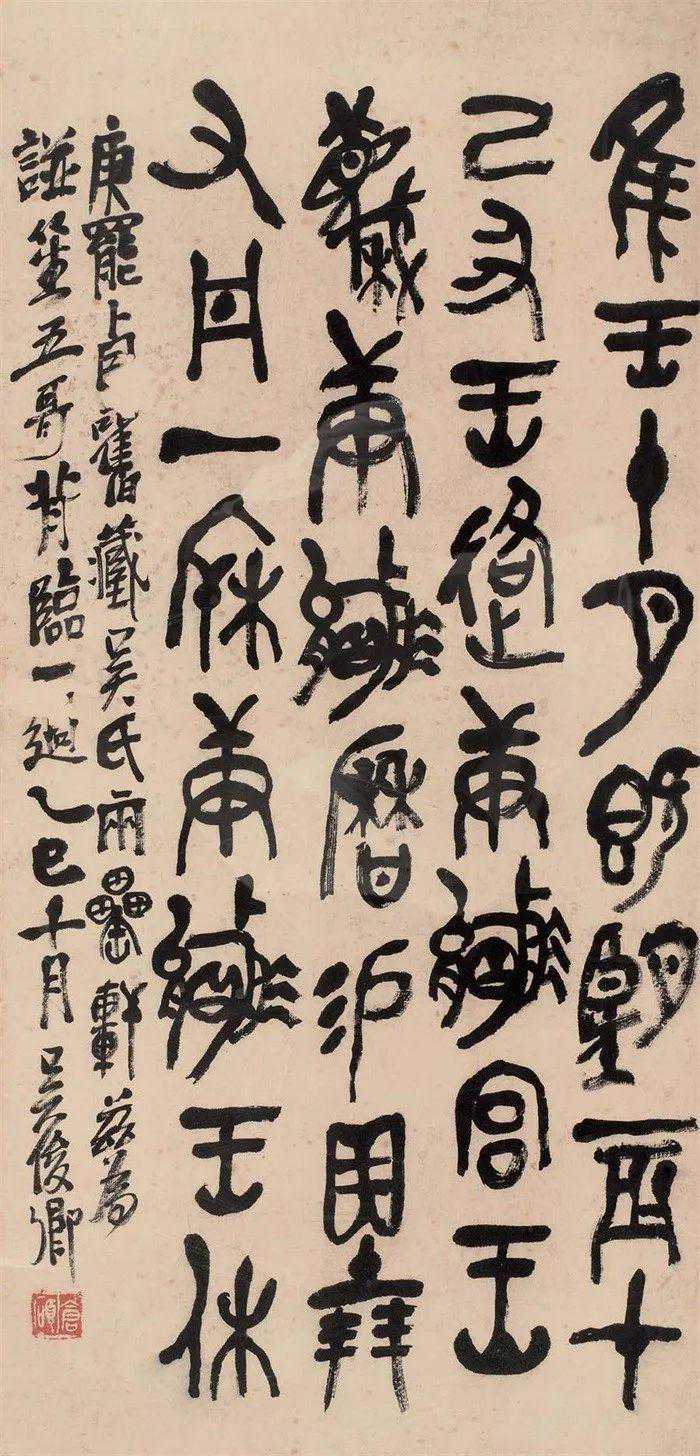 隹王十月既望辰才
己丑王𢓜庚嬴宮王
蔑庚嬴曆易貝十朋
又丹一𣏟庚嬴王休
庚罷卣舊藏吳氏兩罍軒茲為
笙五哥背臨一過乙巳十月吳俊卿
倉碩